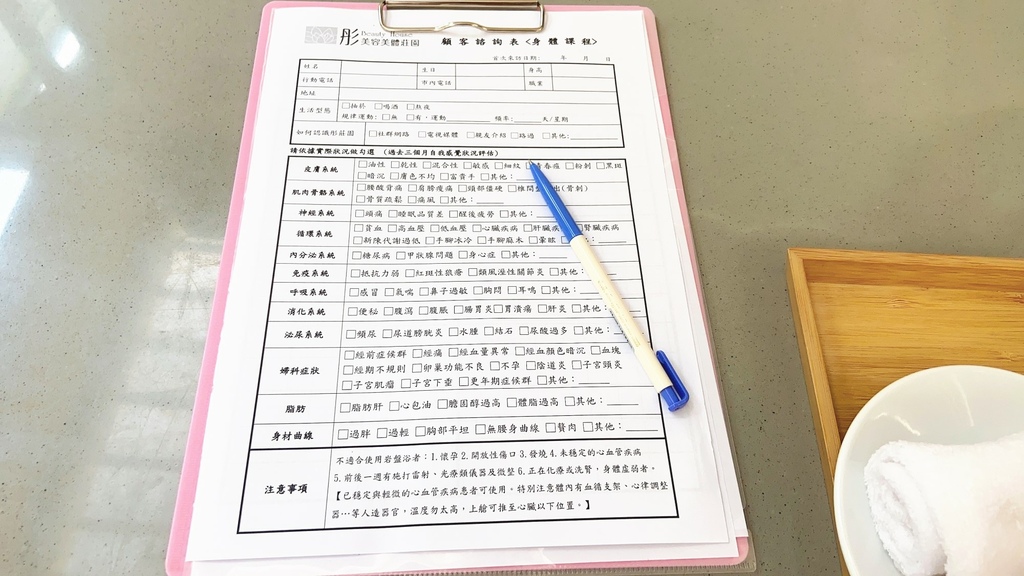 彤 Beauty House
美容美體莊園
顧客諮詢表<身體課程>
首次來訪日期: 年 月 日
姓名 生日 身高
行動電話 市內電話 職業
地址
生活型態 □抽菸 □喝酒 □熬夜
規律運動:□無 □有,運動______ 頻率:______天/星期
如何認識彤莊園 □社群網路 □電視媒體 □親友介紹 □路過 □其他:______
請依據實際狀況做勾選 (過去三個月自我感覺狀況評估)
皮膚系統 □油性 □乾性 □混合性 □敏感 □細紋 青春痘 □粉刺 □黑斑
□暗沉 □膚色不均 □富貴手 □其他:
肌肉骨骼系統 □腰酸背痛 □肩膀痠痛 □頸部僵硬 □椎間 出(骨刺)
□骨質疏鬆 □痛風 □其他:______
神經系統 □頭痛 □睡眠品質差 □醒後疲勞 □其他:
循環系統 □貧血 □高血壓 □低血壓 □心臟疾病 □肝臟疾 腎臟疾病
□新陳代謝過低 □手腳冰冷 □手腳麻木 □暈眩 ______
內分泌系統 □糖尿病 □甲狀腺問題 □身心症 □其他:______
免疫系統 □抵抗力弱 □紅斑性狼瘡 □類風溼性關節炎 □其他:
呼吸系統 □感冒 □氣喘 □鼻子過敏 □胸悶 □耳鳴 □其他:
消化系統 □便秘 □腹瀉 □腹脹 □腸胃炎 □胃潰瘍 □肝炎 □其他:
泌尿系統 □頻尿 □尿道膀胱炎 □水腫 □結石 □尿酸過多 □其他:
婦科症狀 □經前症候群 □經痛 □經血量異常 □經血顏色暗沉 □血塊
□經期不規則 □卵巢功能不良 □不孕 □陰道炎 □子宮頸炎
□子宮肌瘤 □子宮下垂 □更年期症候群 □其他:______
脂肪 □脂肪肝 □心包油 □膽固醇過高 □體脂過高 □其他:______
身材曲線 □過胖 □過輕 □胸部平坦 □無腰身曲線 □贅肉 □其他:______
注意事項 不適合使用岩盤浴者:1.懷孕 2.開放性傷口 3.發燒 4.未穩定的心血管疾病
5.前後一週有施打雷射、光療類儀器及微整 6.正在化療或洗腎,身體虛弱者。
【已穩定與輕微的心血管疾病患者可使用。特別注意體內有血循支架、心律調整
器…等人造器官,溫度勿太高,上艙可推至心臟以下位置。】